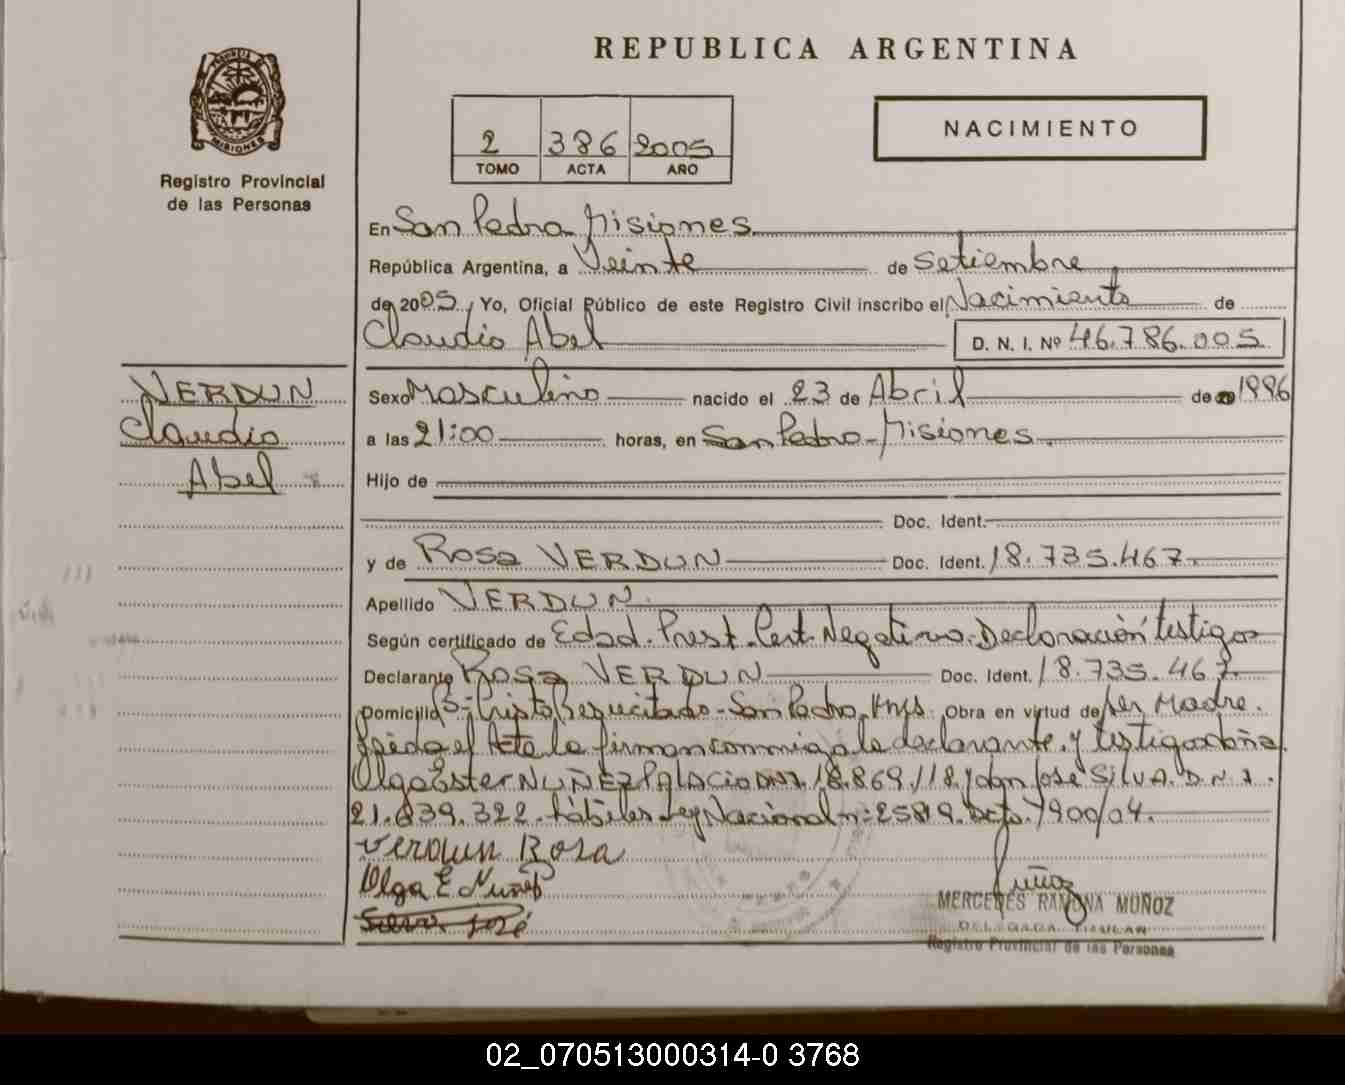 REPUBLICA ARGENTINA
MISIONES
Registro Provincial
de las Personas
2 386 2005
TOMO ACTA AÑO
NACIMIENTO
En San Pedro Misiones
República Argentina, a Veinte de Setiembre
de 2005, Yo, Oficial Público de este Registro Civil inscribo el Nacimiento de
Claudio Abel D. N. I. Nº 46.786.005
VERDUN
Claudio
Abel
Sexo Masculino nacido el 23 de Abril de 1996
a las 21:00 horas, en San Pedro - Misiones
Hijo de
Doc. Ident.
y de Rosa VERDUN Doc. Ident. 18.735.467
Apellido VERDUN
Según certificado de Edad. Prest. Cert. Negativo. Declaración testigos
Declarante Rosa VERDUN Doc. Ident. 18.735.467
Domicilio Bº Cristo Resucitado - San Pedro, Mns. Obra en virtud de ser Madre.
Leída el Acta la firman conmigo la declarante y testigos doña
Olga Ester NUÑEZ PALACIO DNI. 18.869.118 y don José SILVA. D.N.I.
21.839.322 hábiles Ley Nacional nº 25819. Dcto. 1900/04.
Verdun Rosa
Olga E. Nuñez
José
Muñoz
MERCEDES RAMONA MUÑOZ
DELEGADA TITULAR
Registro Provincial de las Personas
02_070513000314-0 3768